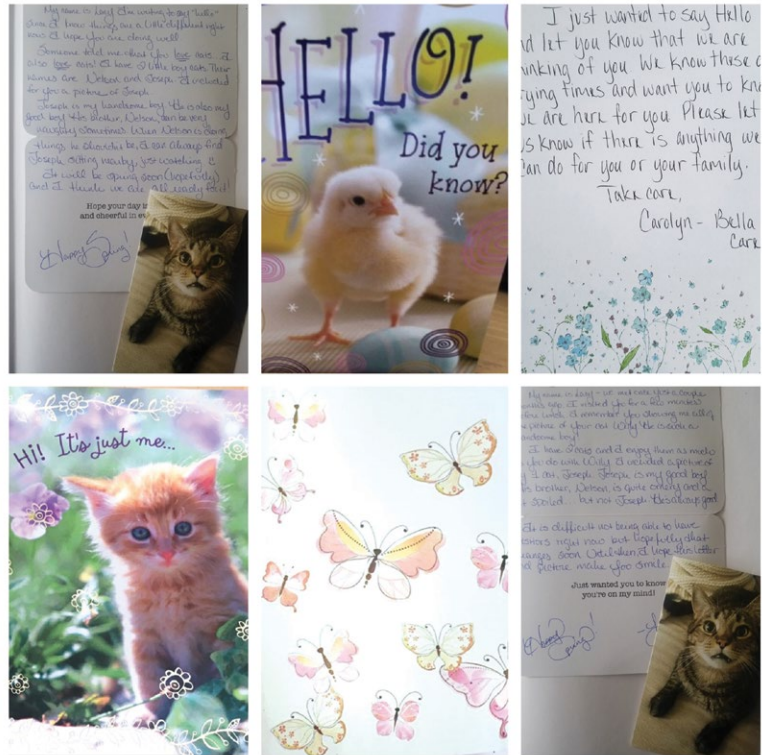 My name is
writing to say "hello"
know things are a little different right
now. I hope you are doing well.
Someone told me that you love cats. I
also love cats! I have 2 little boy cats. Their
names are Nelson and Joseph. I included
for you a picture of Joseph.
Joseph is my handsome boy. He is also my
good boy. His brother, Nelson, can be very
naughty sometimes. When Nelson is doing
things he shouldn't be, I can always find
Joseph sitting nearby, just watching
It will be spring soon (hopefully)
and I think we are all ready for it!
Hope your day is
and cheerful in
Happy Spring!
HELLO!
Did you
know?
I just wanted to say Hello
nd let you know that we are
inking of you. We know these
rying times and want you to kno
we are here for you. Please let
us know if there is anything we
can do for you or your family.
Take care,
Carolyn - Bella
Care
Hi! It's just me...
My name is
picture of your cat Willy. He is such a
handsome boy!
I have 2 cats and I enjoy them as much
you do with Willy. I included a picture of
Joseph. Joseph is my good boy.
His brother, Nelson, is quite ornery and a
spoiled... but not Joseph. He's always good
It is difficult not being able to have
visitors right now but hopefully that
changes soon. Until then, I hope this letter
nd picture make you smile.
Just wanted you to know
you're on my mind!
Happy
Spring!